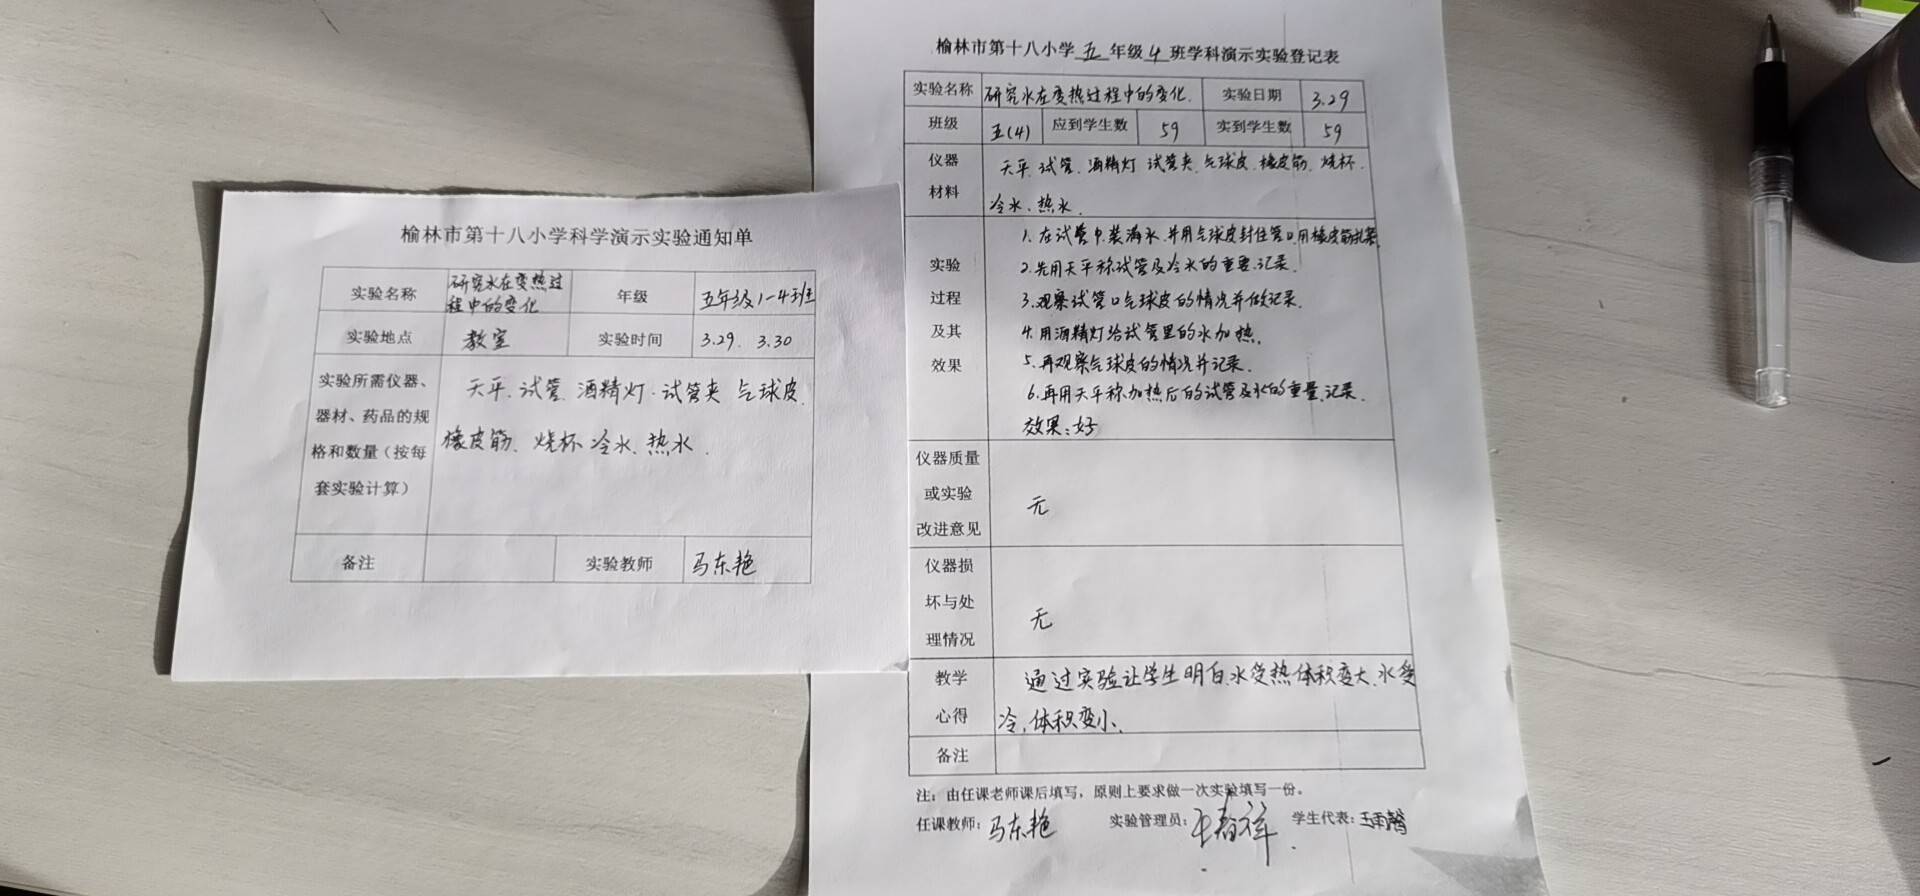 榆林市第十八小学科学演示实验通知单
实验名称 研究水在变热过程中的变化 年级 五年级1-4班
实验地点 教室 实验时间 3.29. 3.30
实验所需仪器、器材、药品的规格和数量（按每套实验计算） 天平.试管.酒精灯.试管夹 气球皮.
橡皮筋、烧杯 冷水、热水.
备注 实验教师 马东艳
榆林市第十八小学 五 年级 4 班学科演示实验登记表
实验名称 研究水在变热过程中的变化. 实验日期 3.29
班级 五(4) 应到学生数 59 实到学生数 59
仪器材料 天平.试管.酒精灯 试管夹.气球皮.橡皮筋.烧杯.
冷水、热水.
实验过程及其效果
1.在试管中装满水.并用气球皮封住管口.用橡皮筋扎紧.
2.先用天平称试管及冷水的重要.记录.
3.观察试管口气球皮的情况并做记录.
4.用酒精灯给试管里的水加热.
5.再观察气球皮的情况并记录.
6.再用天平称加热后的试管及水的重量.记录.
效果:好
仪器质量或实验改进意见 无
仪器损坏与处理情况 无
教学心得 通过实验让学生明白.水受热体积变大.水受
冷,体积变小.
备注
注：由任课老师课后填写，原则上要求做一次实验填写一份。
任课教师：马东艳 实验管理员：王春祥 学生代表：王雨馨